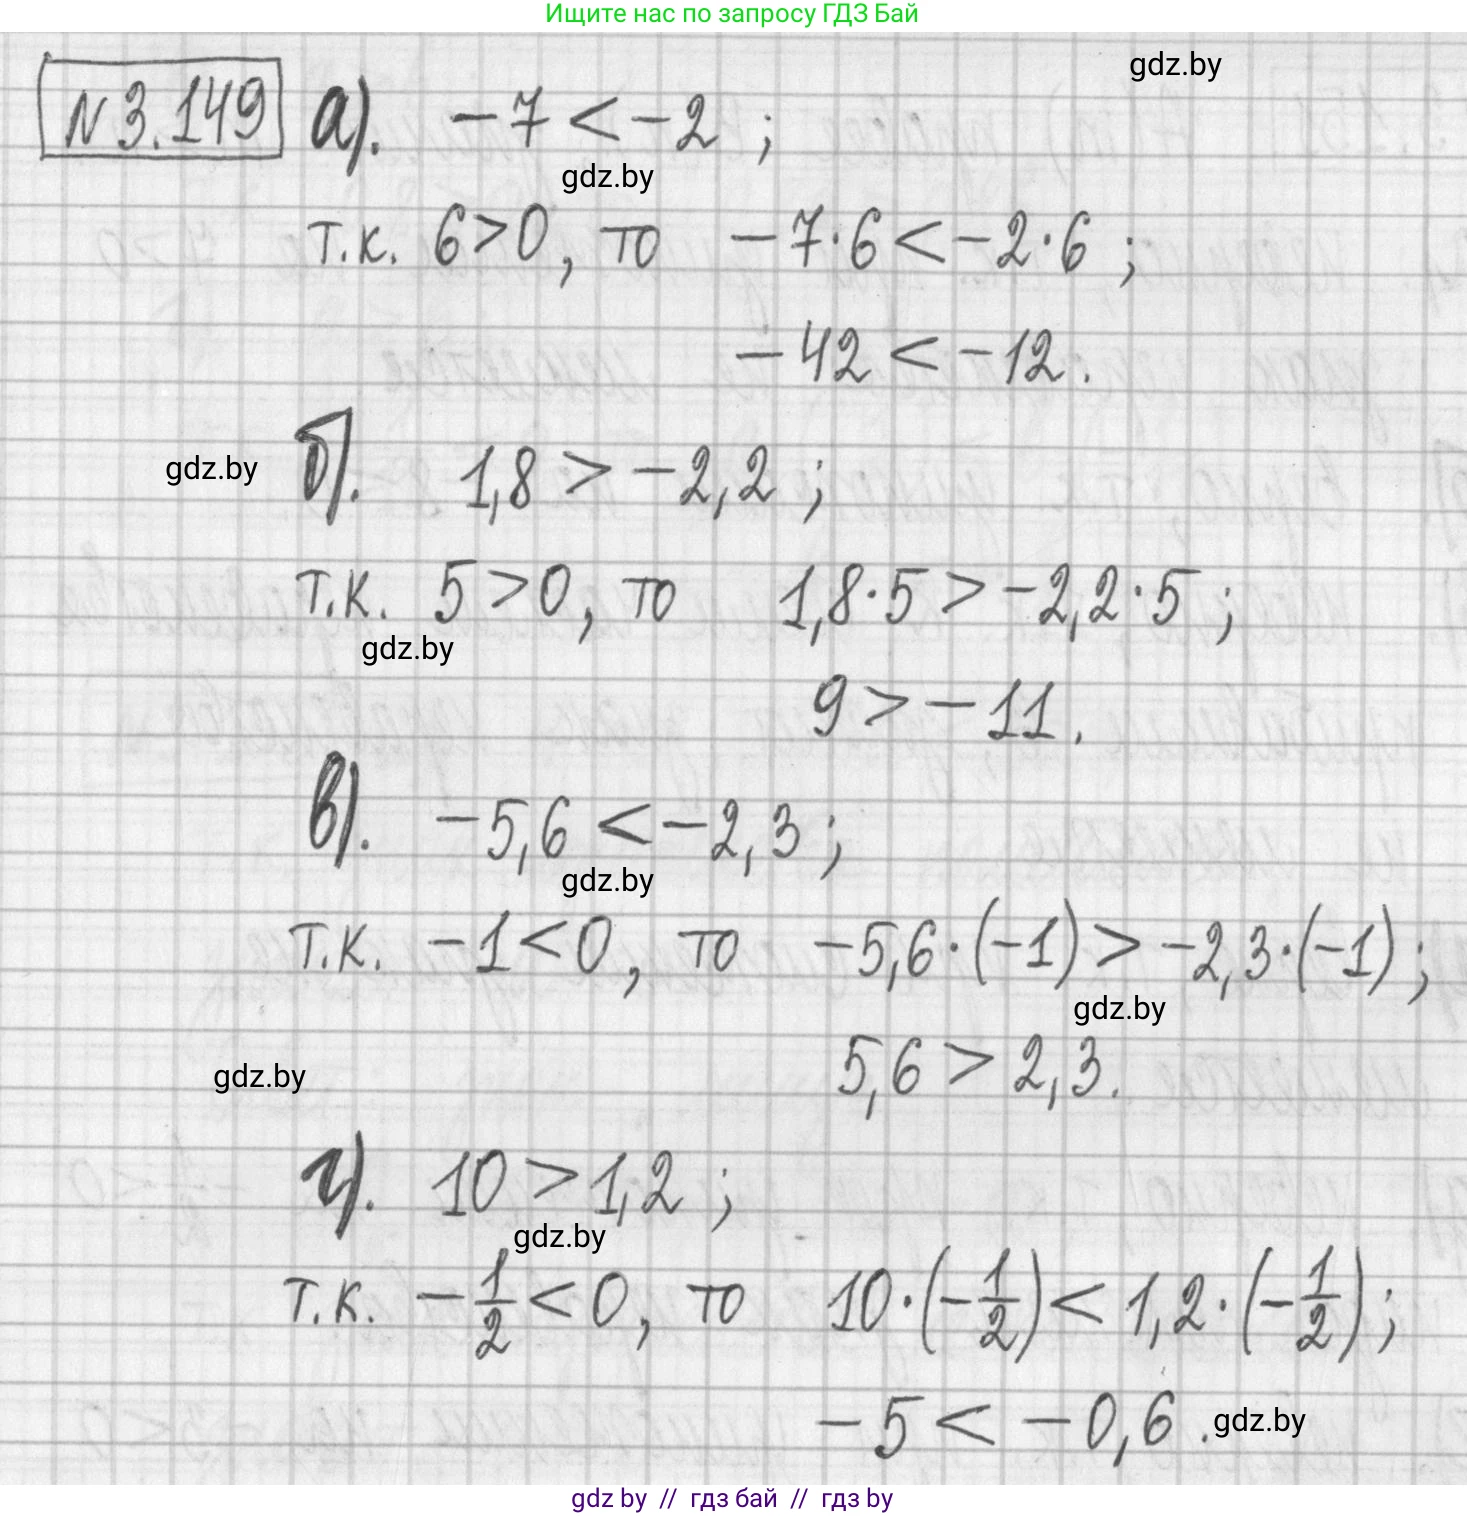 Ищите нас по запросу ГДЗ Бай
gdz.by
№ 3.149 а). −7 < −2 ;
gdz.by
т.к. 6 > 0, то −7·6 < −2·6 ;
−42 < −12.
gdz.by б). 1,8 > −2,2 ;
т.к. 5 > 0, то 1,8·5 > −2,2·5 ;
gdz.by
9 > −11.
в). −5,6 < −2,3 ;
gdz.by
т.к. −1 < 0, то −5,6·(−1) > −2,3·(−1) ;
gdz.by
5,6 > 2,3.
gdz.by
г). 10 > 1,2 ;
gdz.by
т.к. −1/2 < 0, то 10·(−1/2) < 1,2·(−1/2) ;
−5 < −0,6 . gdz.by
gdz by // гдз бай // гдз by